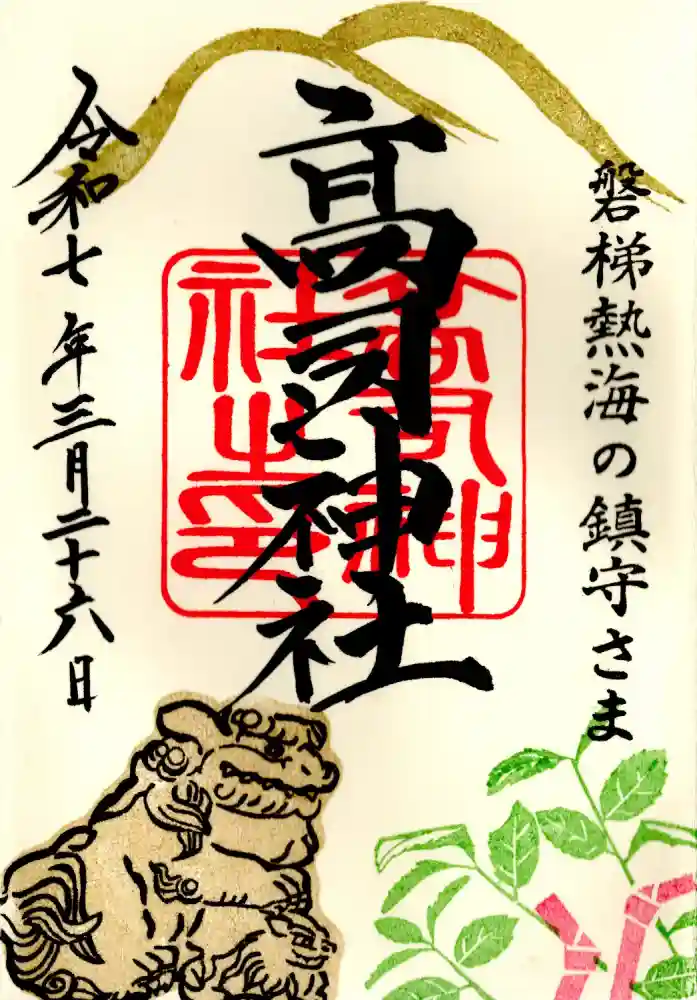 磐梯熱海の鎮守さま
高司神社
高司神
社之印
令和七年三月二十六日